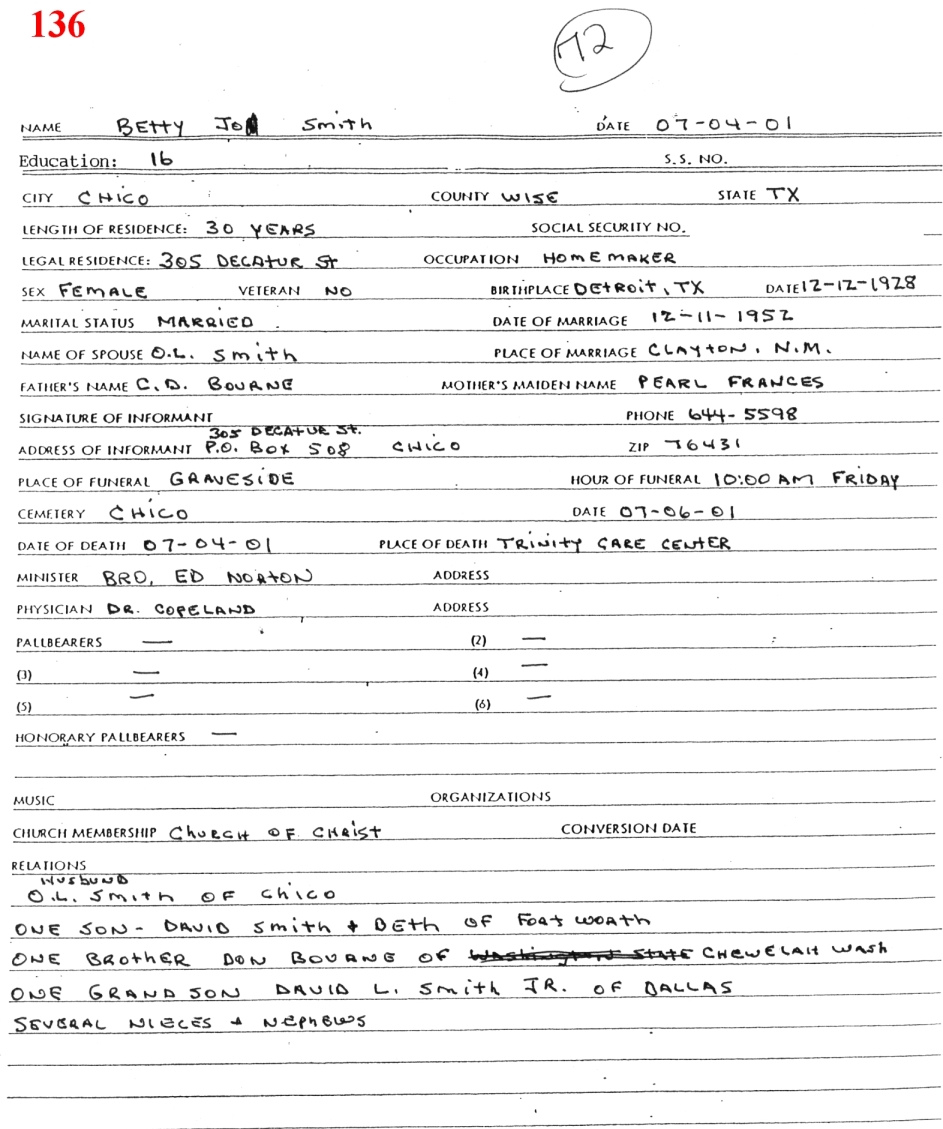 136
72
NAME BETTY JO Smith DATE 07-04-01
Education: 16 S.S. NO.
CITY CHICO COUNTY WISE STATE TX
LENGTH OF RESIDENCE: 30 YEARS SOCIAL SECURITY NO.
LEGAL RESIDENCE: 305 DECATUR St OCCUPATION HOMEMAKER
SEX FEMALE VETERAN NO BIRTHPLACE DETROIT, TX DATE 12-12-1928
MARITAL STATUS MARRIED DATE OF MARRIAGE 12-11-1952
NAME OF SPOUSE O.L. Smith PLACE OF MARRIAGE CLAYTON, N.M.
FATHER'S NAME C.D. BOURNE MOTHER'S MAIDEN NAME PEARL FRANCES
SIGNATURE OF INFORMANT PHONE 644-5598
305 DECATUR St.
ADDRESS OF INFORMANT P.O. BOX 508 CHICO ZIP 76431
PLACE OF FUNERAL GRAVESIDE HOUR OF FUNERAL 10:00 AM FRIDAY
CEMETERY CHICO DATE 07-06-01
DATE OF DEATH 07-04-01 PLACE OF DEATH TRINITY CARE CENTER
MINISTER BRO. ED NORTON ADDRESS
PHYSICIAN DR. COPELAND ADDRESS
PALLBEARERS — (2) —
(3) — (4) —
(5) — (6) —
HONORARY PALLBEARERS —
MUSIC ORGANIZATIONS
CHURCH MEMBERSHIP CHURCH OF CHRIST CONVERSION DATE
RELATIONS
HUSBUND
O.L. Smith OF CHICO
ONE SON - DAVID Smith + BETH OF FORT WORTH
ONE BROTHER DON BOURNE OF Washington STATE CHEWELAH WASH
ONE GRANDSON DAVID L. Smith JR. OF DALLAS
SEVERAL NIECES + NEPHEWS